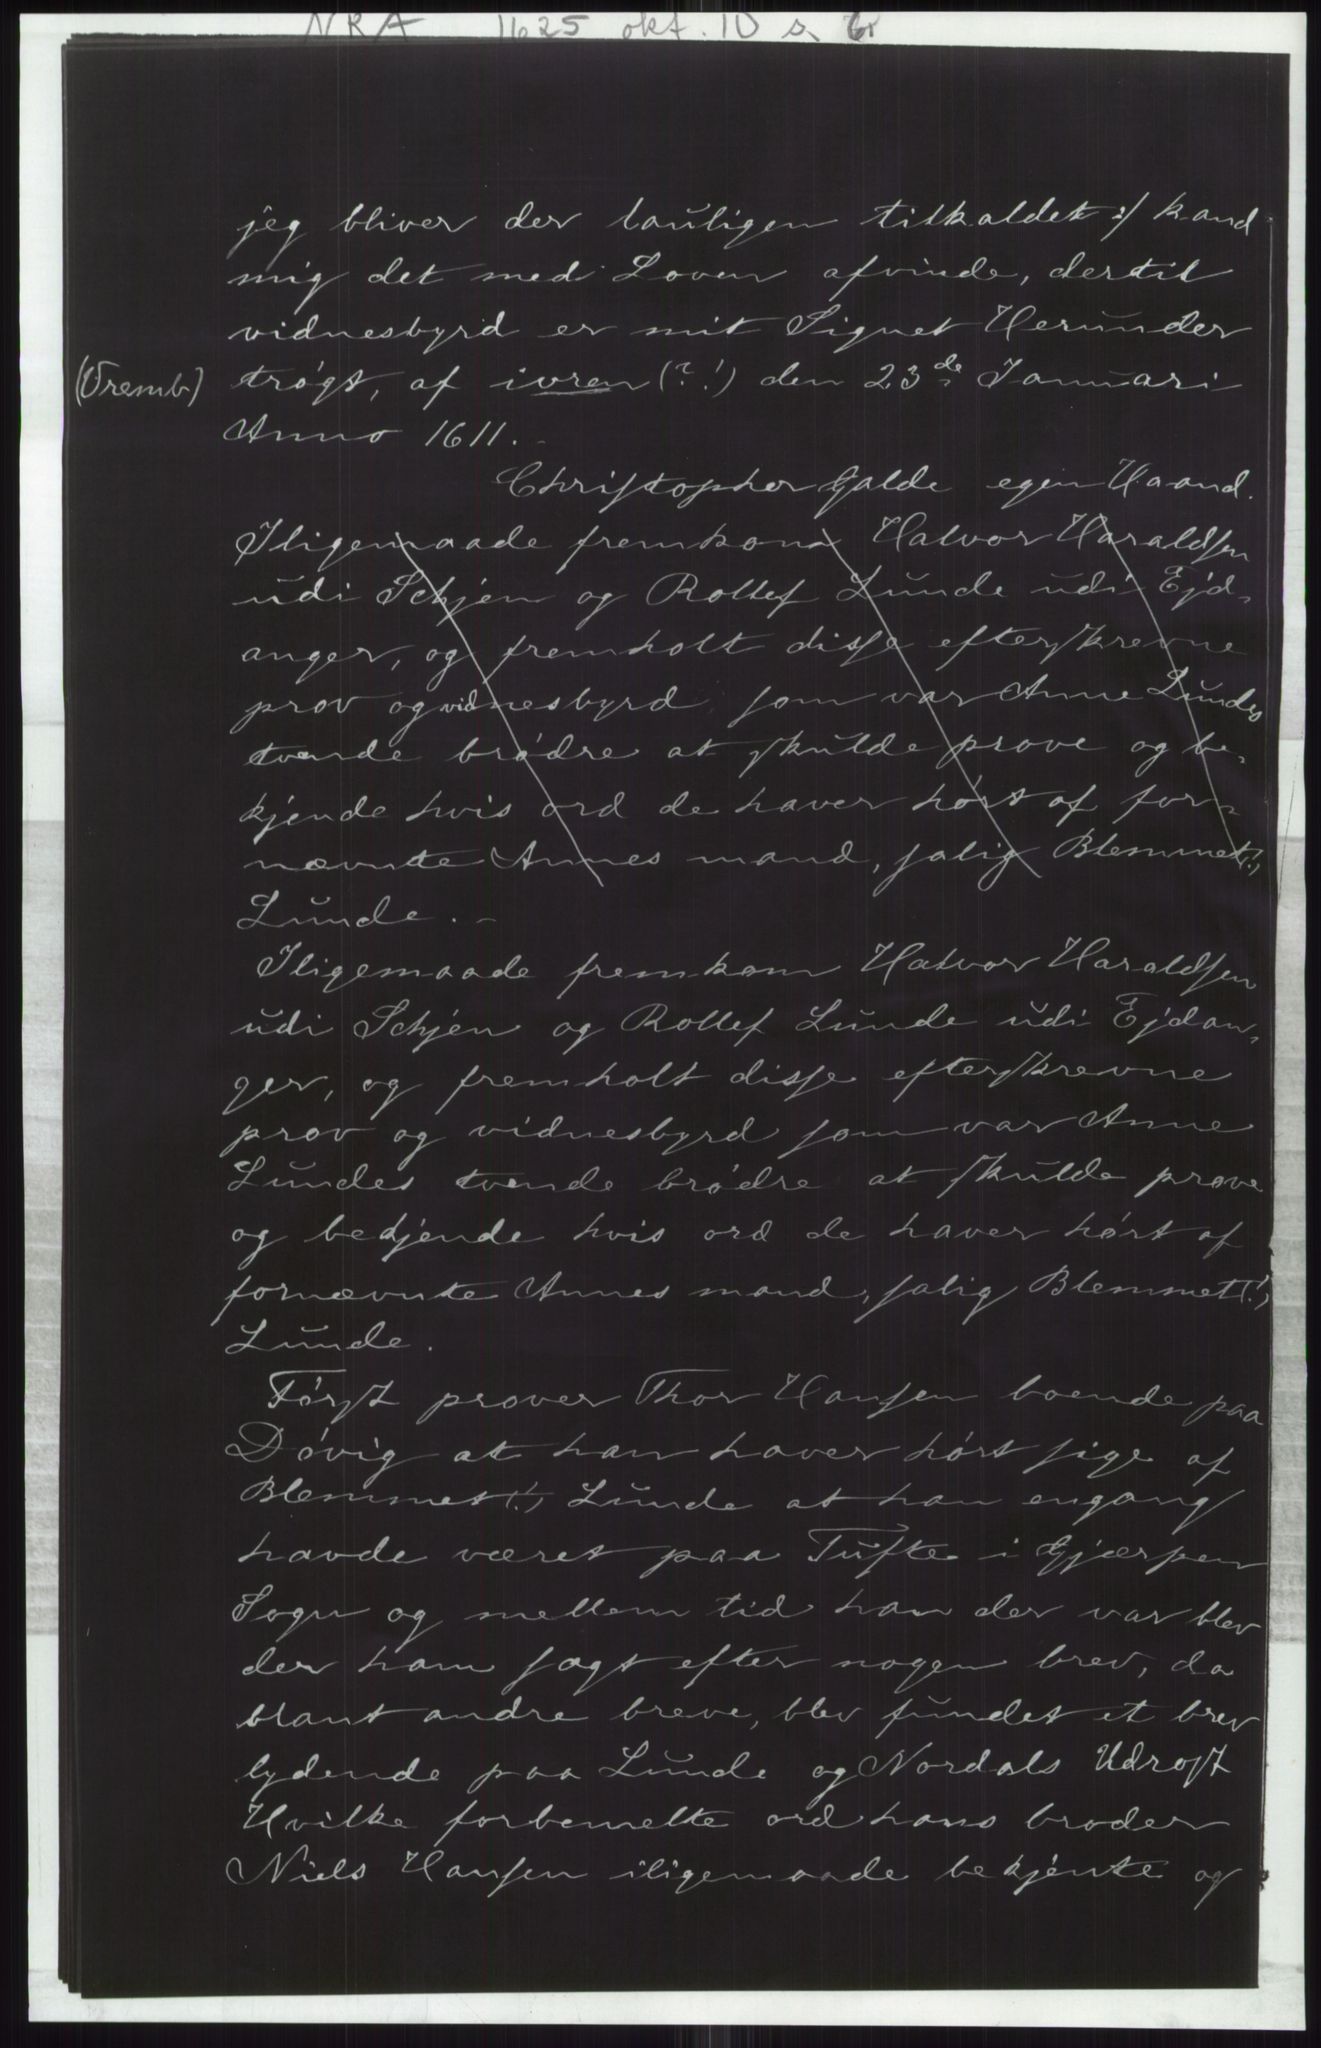 NRA 1625 okt. 10 s. 6
jeg bliver der lauligen tilkaldet :/ kand
mig det med Loven afvinde, dertil
vidnesbyrd er mit Signet Herunder
(Vremb) trøgt, af ivren (?!) den 23de Januari
Anno 1611.
Christopher Galde egen Haand.
Iligemaade fremkom Halvor Haraldsen
udi Schjen og Rollef Lunde udi Ejd-
anger, og fremholt disse efterskrevne
prov og vidnesbyrd som var Anne Lundes
tvende brødre at skulde prove og be-
kjende hvis ord de haver hørt af for-
nævnte Annes mand, salig Blemmet (!)
Lunde. –
Iligemaade fremkom Halvor Haraldsen
udi Schjen og Rollef Lunde udi Ejdan-
ger, og fremholt disse efterskrevne
prov og vidnesbyrd som var Anne
Lundes tvende brødre at skulde prove
og bekjende hvis ord de haver hørt af
fornævnte Annes mand, salig Blemmet (!)
Lunde.
Først prover Thor Hansen boende paa
Døvig at han haver hørt sige af
Blemmet (!) Lunde at han engang
havde været paa Tufte i Gjærpen
Sogn og mellem tid han der var blev
der ham sagt efter nogen brev, da
blant andre breve, blev fundet et brev
lydende paa Lunde og Nordals Udrost
Hvilke forbemelte ord hans broder
Niels Hansen iligemaade bekjente og